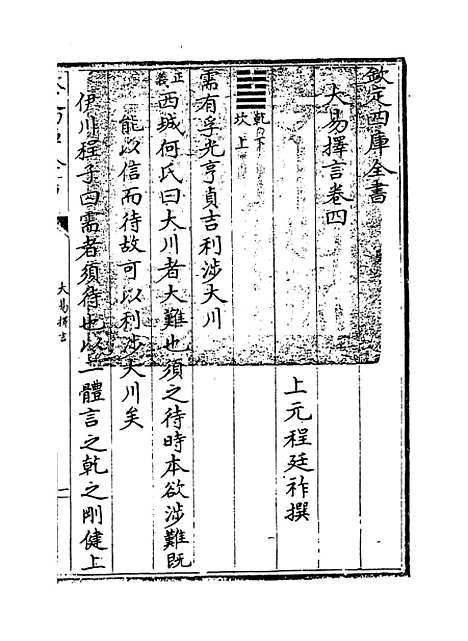 欽定四庫全書
大易擇言卷四
上元程廷祚撰
乾下
坎上
需有孚光亨貞吉利涉大川
正義
西城何氏曰大川者大難也須之待時本欲涉難既
能以信而待故可以利涉大川矣
伊川程子曰需者須待也以二體言之乾之剛健上
大易擇言